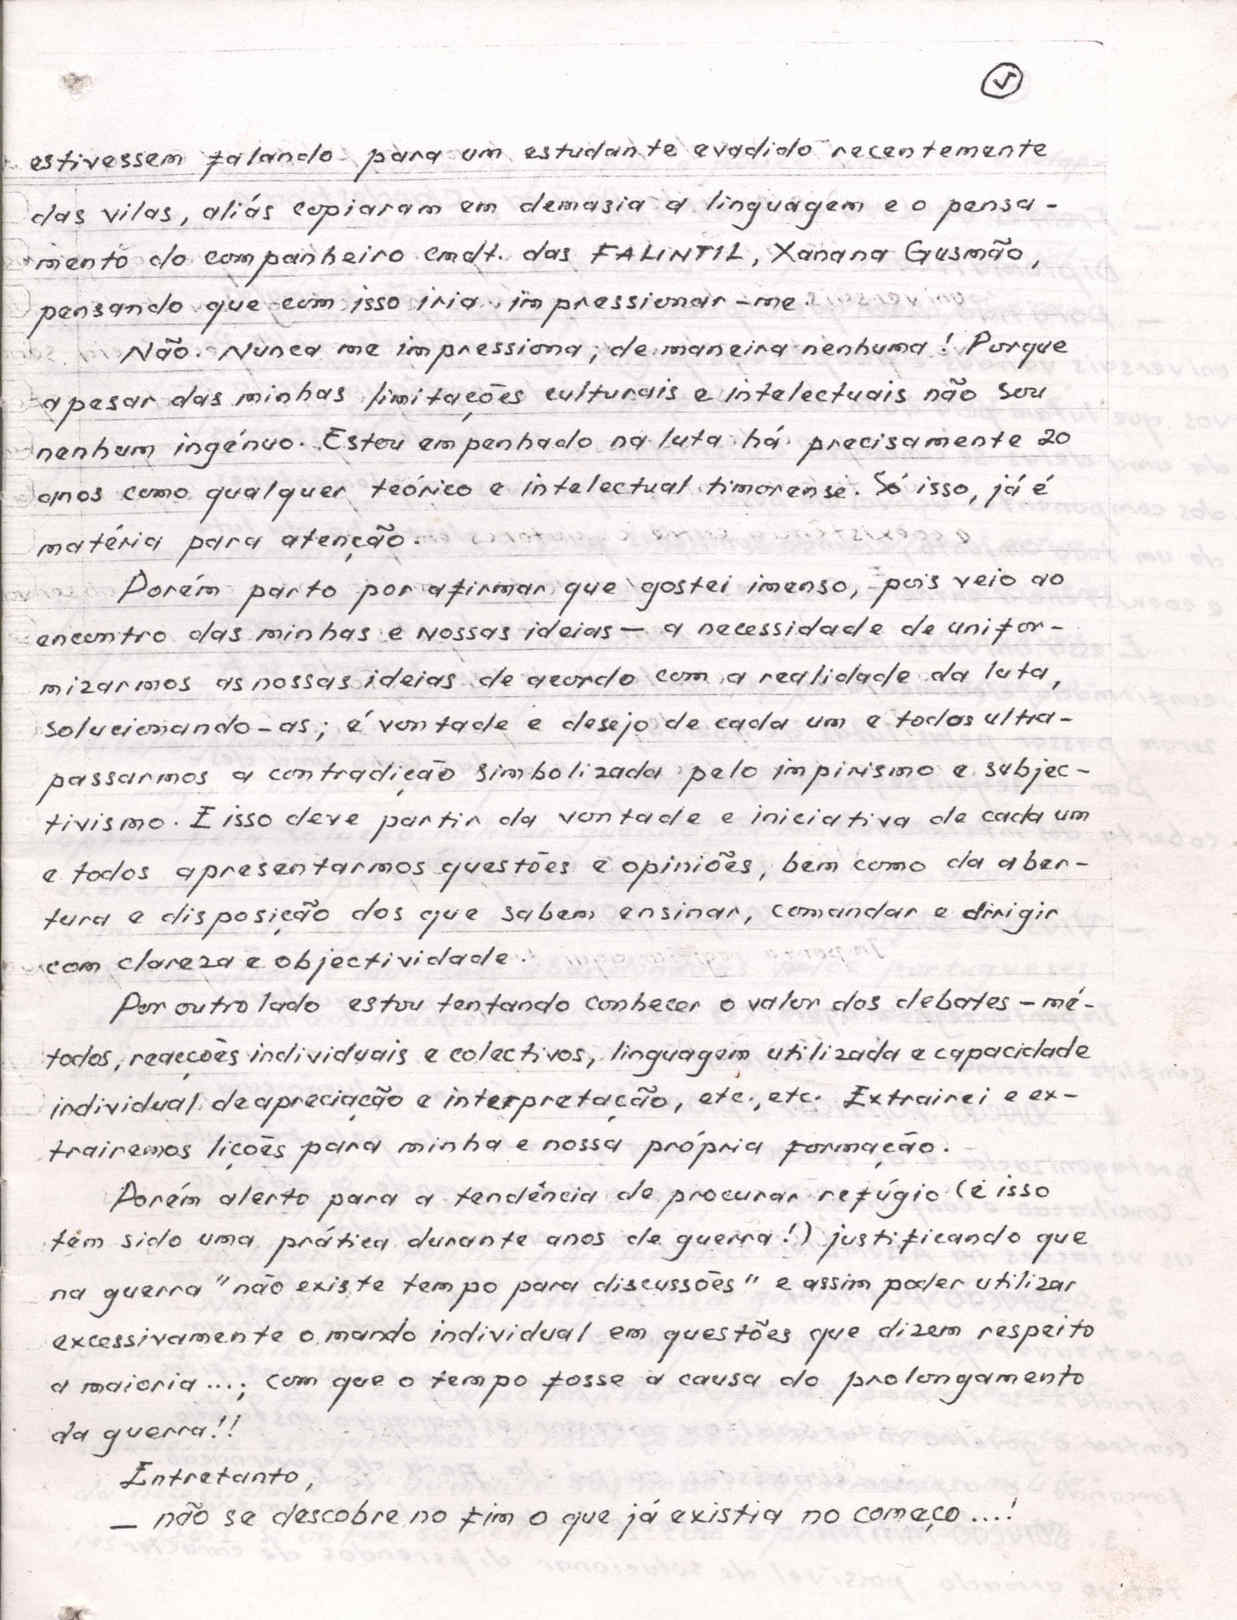 5
estivessem falando para um estudante evadido recentemente
das vilas, aliás copiaram em demasia a linguagem e o pensa-
mento do companheiro cmdt. das FALINTIL, Xanana Gusmão,
pensando que com isso iria impressionar-me.
Não. Nunca me impressiona, de maneira nenhuma! Porque
apesar das minhas limitações culturais e intelectuais não sou
nenhum ingénuo. Estou empenhado na luta há precisamente 20
anos como qualquer teórico e intelectual timorense. Só isso, já é
matéria para atenção.
Porém parto por afirmar que gostei imenso, pois veio ao
encontro das minhas e nossas ideias — a necessidade de unifor-
mizarmos as nossas ideias de acordo com a realidade da luta,
solucionando-as; é vontade e desejo de cada um e todos ultra-
passarmos a contradição simbolizada pelo impirismo e subjec-
tivismo. E isso deve partir da vontade e iniciativa de cada um
e todos apresentarmos questões e opiniões, bem como da aber-
tura e disposição dos que sabem ensinar, comandar e dirigir
com clareza e objectividade.
Por outro lado estou tentando conhecer o valor dos debates – mé-
todos, reacções individuais e colectivos, linguagem utilizada e capacidade
individual de apreciação e interpretação, etc., etc. Extrairei e ex-
trairemos lições para minha e nossa própria formação.
Porém alerto para a tendência de procurar refúgio (e isso
têm sido uma prática durante anos de guerra!) justificando que
na guerra "não existe tempo para discussões" e assim poder utilizar
excessivamente o mando individual em questões que dizem respeito
a maioria...; com que o tempo fosse a causa do prolongamento
da guerra!!
Entretanto,
— não se descobre no fim o que já existia no começo...!